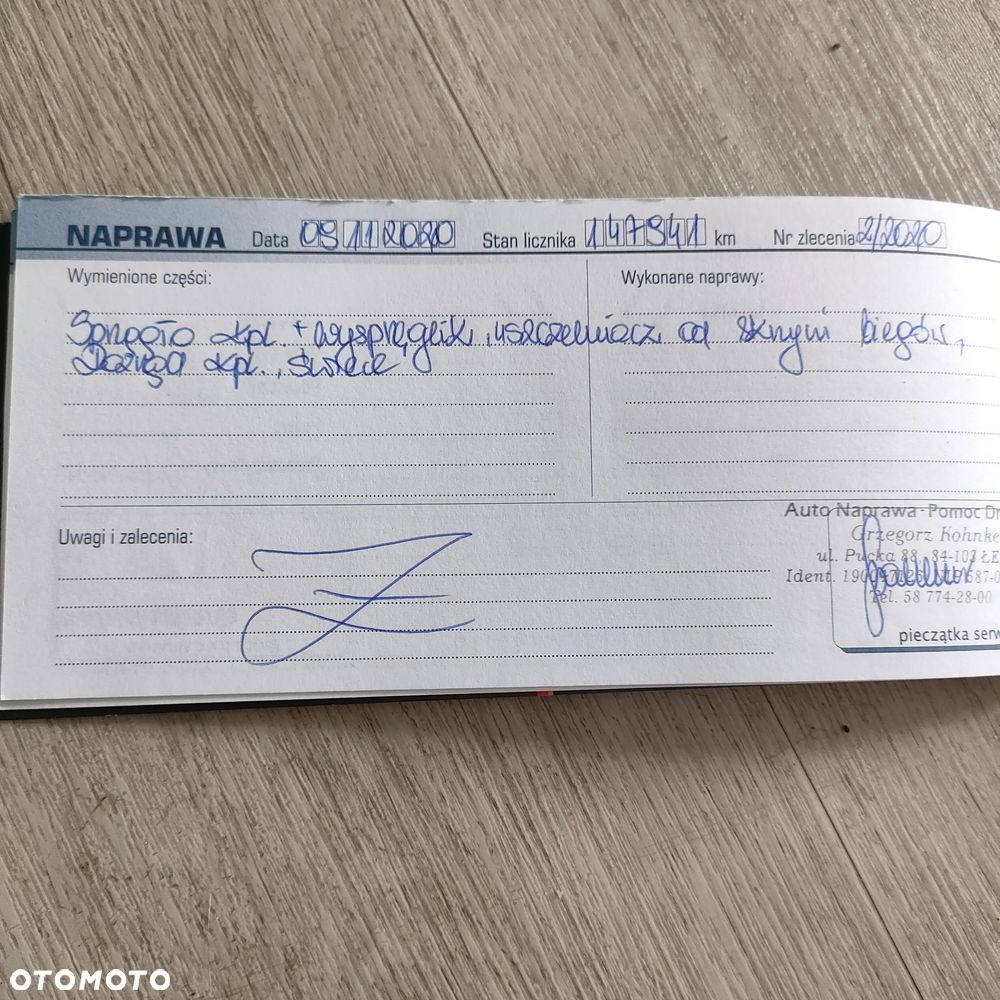 NAPRAWA Data 09 11 2020 Stan licznika 147941 km Nr zlecenia 2/2020
Wymienione części: Wykonane naprawy:
Sprzęgło kpl. + wysprzęglik, uszczelniacz od skrzyni biegów,
kpl., świece
Uwagi i zalecenia:
Auto Naprawa - Pomoc Dr
Grzegorz Kohnke
ul. Pucka 88, 84-103 ŁE
Ident.
Tel. 58 774-28-00
pieczątka serw
OTOMOTO